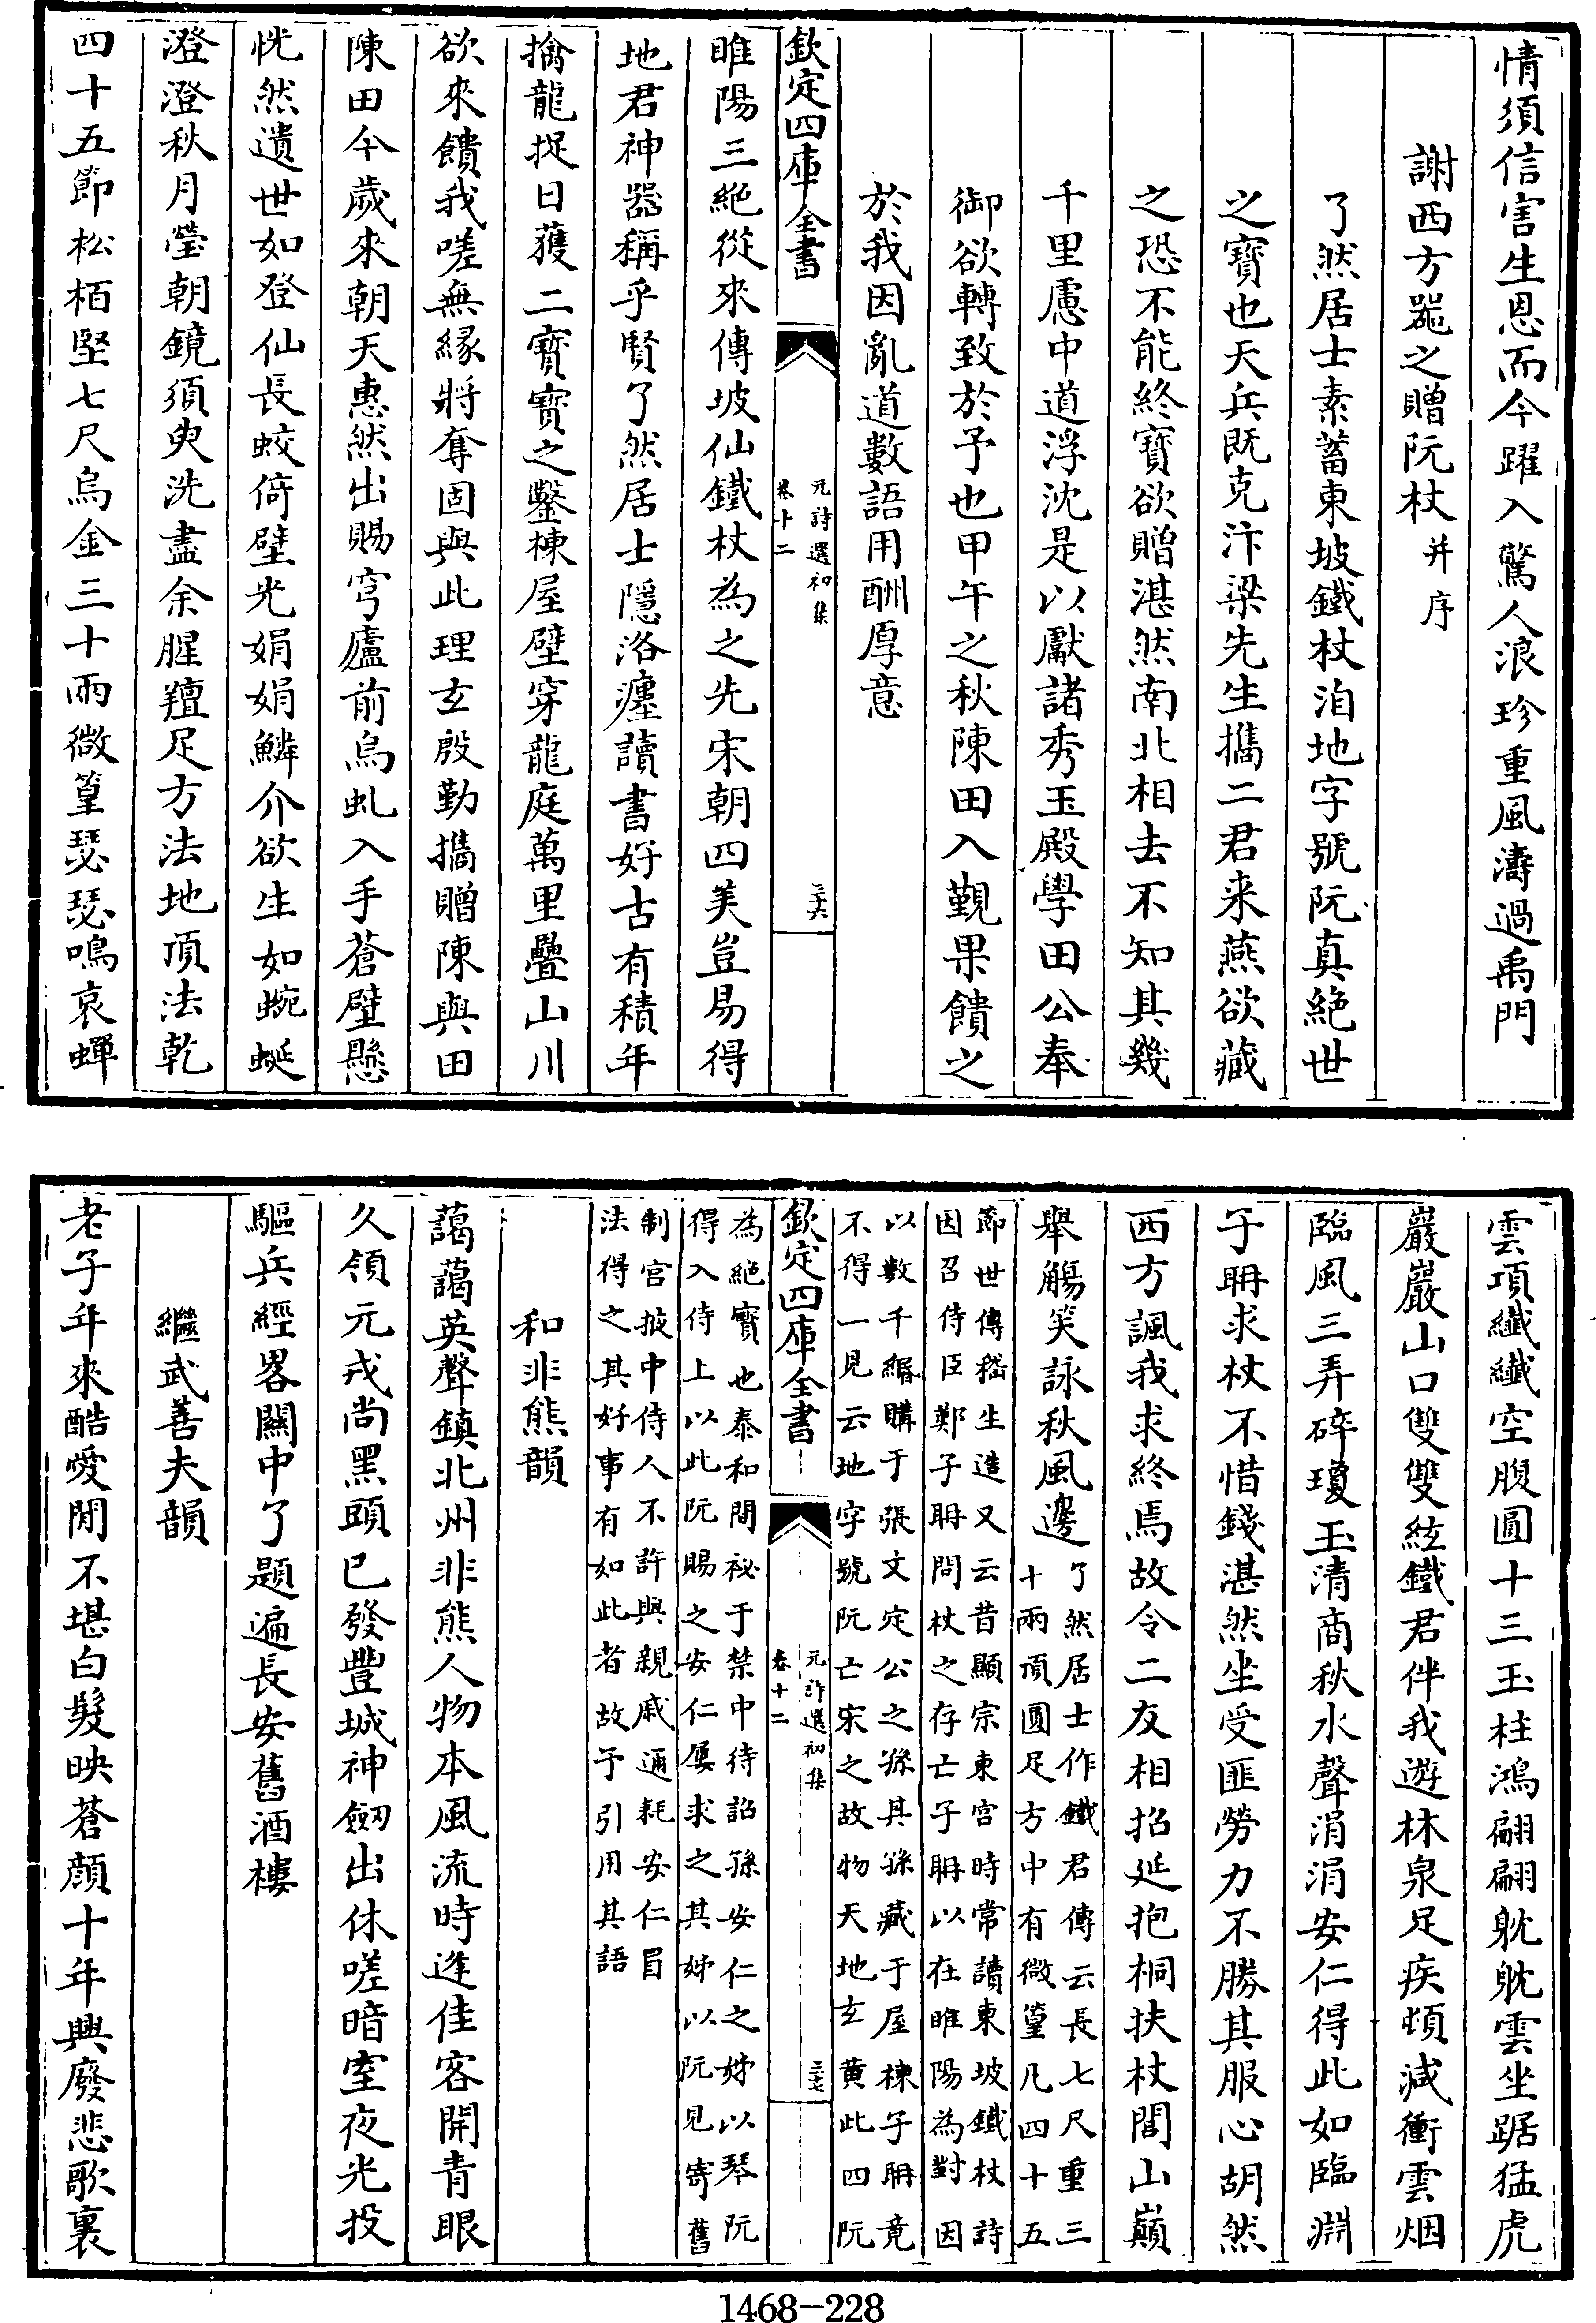 情須信害生恩而今躍入驚人浪珍重風濤過禹門
謝西方噐之贈阮杖并序
了然居士素蓄東坡鐵杖洎地字號阮真絶世
之寳也天兵既克汴梁先生攜二君来燕欲藏
之恐不能終寳欲贈湛然南北相去不知其幾
千里慮中道浮沈是以獻諸秀玉殿學田公奉
御欲轉致於予也甲午之秋陳田入覲果饋之
於我因亂道數語用酬厚意
欽定四庫全書
元詩選初集
卷十二
三十六
睢陽三絶從來傳坡仙鐵杖為之先宋朝四美豈易得
地君神器稱乎賢了然居士隱洛瀍讀書好古有積年
擒龍捉日獲二寳寳之鑿棟屋壁穿龍庭萬里疊山川
欲來饋我嗟無緣將奪固與此理玄殷勤攜贈陳與田
陳田今歲來朝天惠然出賜穹廬前烏虬入手蒼壁懸
恍然遺世如登仙長蛟倚壁光娟娟鱗介欲生如蜿蜒
澄澄秋月瑩朝鏡須臾洗盡余腥羶足方法地頂法乾
四十五節松栢堅七尺烏金三十兩微篁瑟瑟鳴哀蟬
雲項纖纖空腹圓十三玉柱鴻翩翩躭躭雲坐踞猛虎
巖巖山口雙雙絃鐵君伴我遊林泉足疾頓減衝雲烟
臨風三弄碎瓊玉清商秋水聲涓涓安仁得此如臨淵
于冊求杖不惜錢湛然坐受匪勞力不勝其服心胡然
西方諷我求終焉故令二友相招延抱桐扶杖閭山巔
舉觴笑詠秋風邊
了然居士作鐵君傳云長七尺重三
十兩頂圓足方中有微篁凡四十五
節世傳嵇生造又云昔顯宗東宮時常讀東坡鐵杖詩
因召侍臣鄭子聃問杖之存亡子聃以在睢陽為對因
以數千緡購于張文定公之孫其孫藏于屋棟子聃竟
不得一見云地字號阮亡宋之故物天地玄黄此四阮
欽定四庫全書
元詩選初集
卷十二
三十七
為絶寳也泰和間祕于禁中待詔孫安仁之姊以琴阮
得入侍上以此阮賜之安仁屢求之其姊以阮見寄舊
制宫掖中侍人不許與親戚通耗安仁冒
法得之其好事有如此者故予引用其語
和非熊韻
藹藹英聲鎮北州非熊人物本風流時逢佳客開青眼
久領元戎尚黑頭已發豐城神劒出休嗟暗室夜光投
驅兵經畧關中了題遍長安舊酒樓
繼武善夫韻
老子年來酷愛閒不堪白髮映蒼顔十年興廢悲歌裏
1468-228